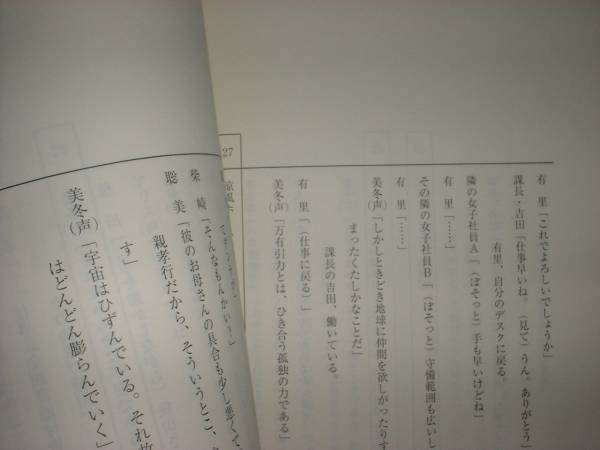 有　里「これでよろしいでしょうか」
課長・吉田「仕事早いね。（見て）うん。ありがとう」
有里、自分のデスクに戻る。
隣の女子社員A「（ぼそっと）手も早いけどね」
有　里「……」
その隣の女子社員B「（ぼそっと）守備範囲も広いし
有　里「……」
美冬（声）「しかしときどき地球に仲間を欲しがったりす
まったくたしかなことだ」
課長の吉田、働いている。
有　里「（仕事に戻る）」
美冬（声）「万有引力とは、ひき合う孤独の力である」
27
「そんなもんかいま？」
聡　美「（彼のお母さんの具合も少し悪くて、
親孝行だから、そういうとこ、
す」
美冬（声）「宇宙はひずんでいる。それ故
はどんどん膨らんでいく」